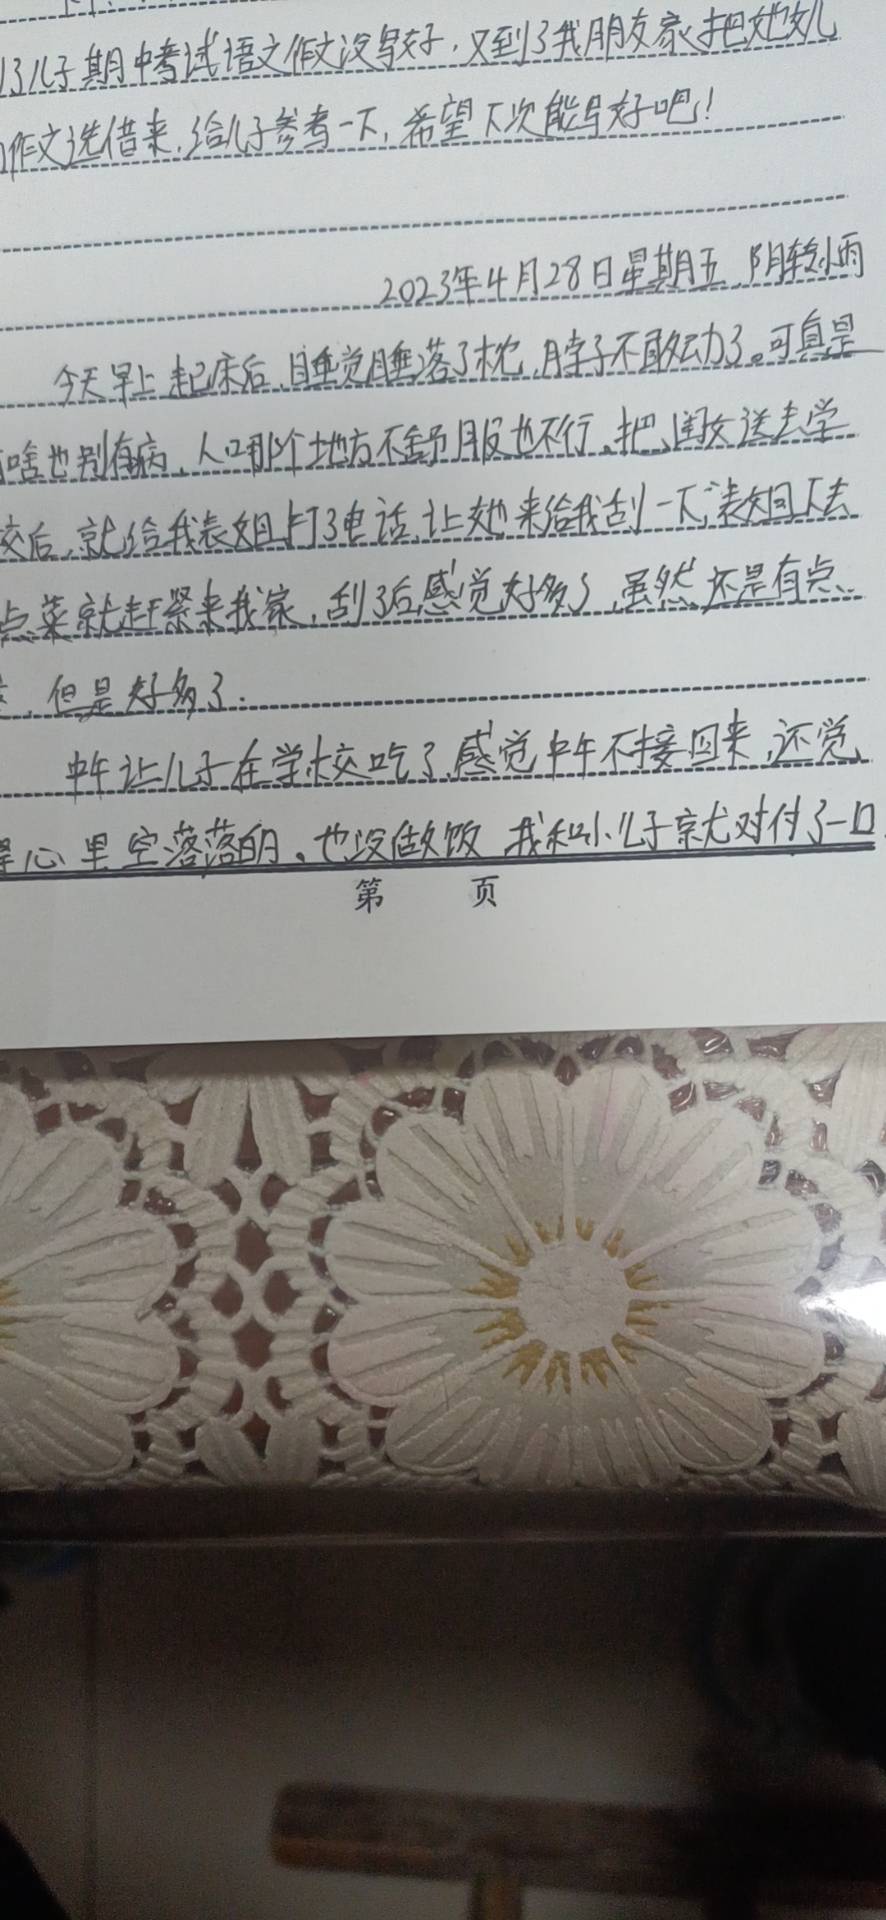 了儿子期中考试语文作文没写好，又到了我朋友家把她女儿
作文选借来，给儿子参考一下，希望下次能写好吧！
2023年4月28日星期五 阴转小雨
今天早上起床后，睡觉睡落了枕，脖子不敢动了。可真是
啥也别有病，人哪个地方不舒服也不行。把闺女送去学
校后，就给我表姐打了电话，让她来给我刮一下，表姐下去
点菜就赶紧来我家，刮了后感觉好多了，虽然还是有点
，但是好多了．
中午让儿子在学校吃了，感觉中午不接回来，还觉
得心里空落落的。也没做饭 我和小儿子就对付了一口
第 页